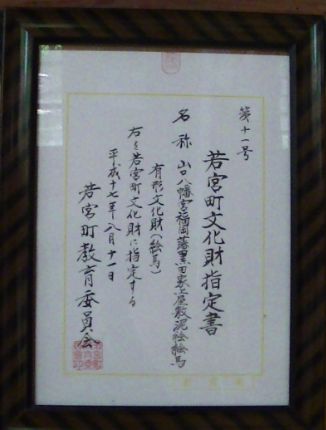 第十一号
若宮町文化財指定書
名称 山口八幡宮福岡藩黒田家上屋敷泥絵絵馬
有形文化財(絵馬)
右を若宮町文化財に指定する
平成十七年八月十一日
若宮町教育委員会